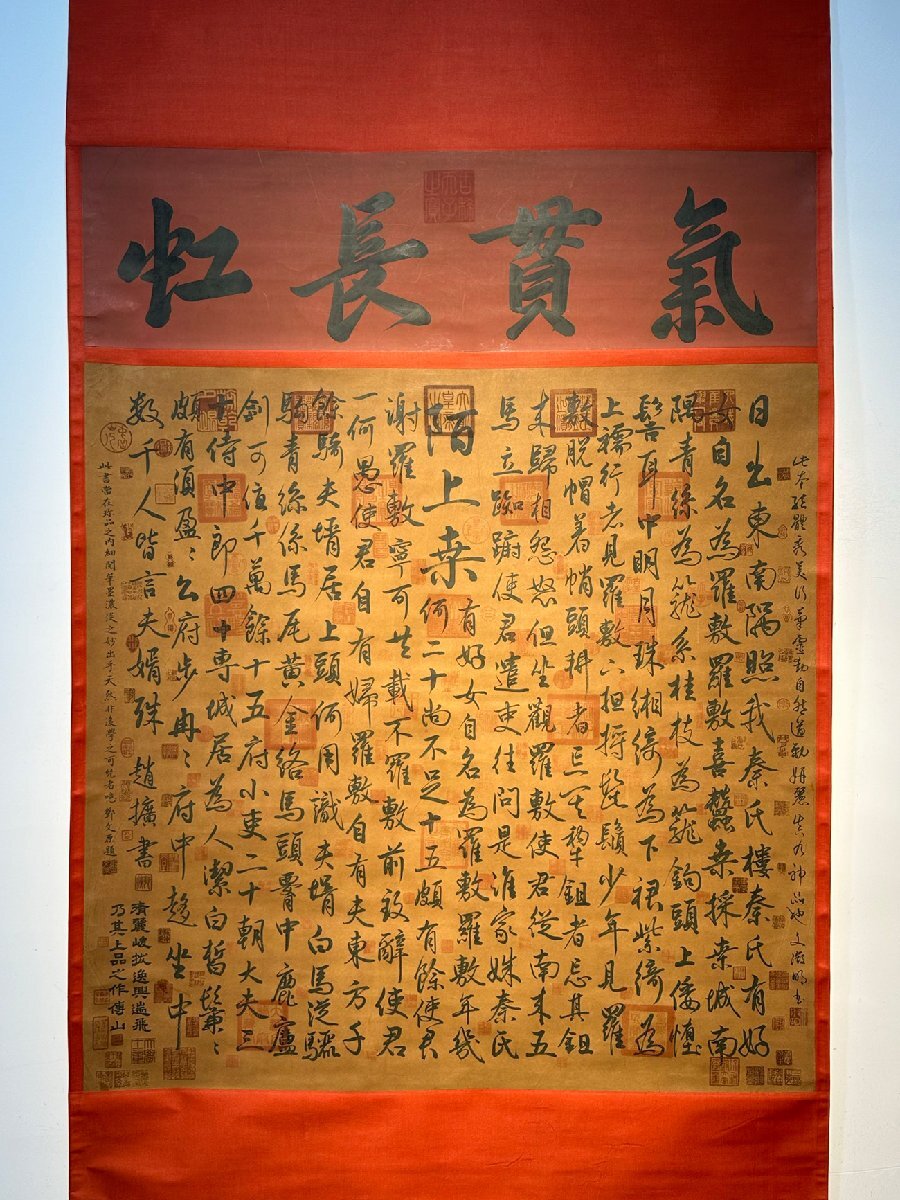 氣貫長虹
行筆靈動自然遒勁妍麗真乃神品也文徵明書
日出東南隅照我秦氏樓秦氏有好
女自名為羅敷羅敷喜蠶桒採桒城南
隅青絲為籠系桂枝為籠鉤頭上倭墮
髻耳中明月珠緗綺為下裙紫綺為
上襦行者見羅敷下担捋髭鬚少年見羅
敷脫帽著帩頭耕者忘其犂鉏者忘其鉏
来歸相怨怒但坐觀羅敷使君從南来五
馬立踟躕使君遣吏往問是誰家姝秦氏
陌上桒
有好女自名為羅敷羅敷年幾
何二十尚不足十五頗有餘使君
謝羅敷寧可共載不羅敷前致辭使君
一何愚使君自有婦羅敷自有夫東方千
餘騎夫壻居上頭何用識夫壻白馬從驪
駒青絲係馬尾黃金絡馬頭腰中鹿盧
劍可值千萬餘十五府小吏二十朝大夫三
十侍中郎四十專城居為人潔白皙鬑〻
頗有須盈〻公府步冉〻府中趨坐中
數千人皆言夫婿殊趙擴書
此書當在妙品之內細閱筆墨濃淡之妙出乎天然非後學之可能者也鄧文原題
清麗峻拔逸興遄飛
乃其上品之作傅山